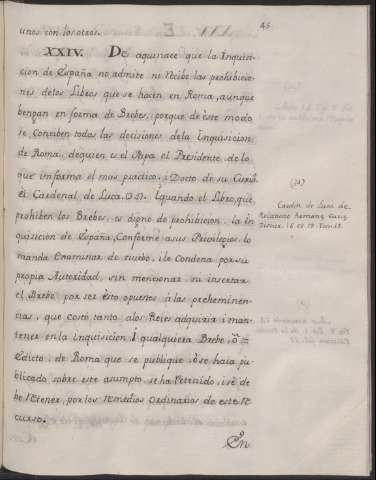 45
unos con los otros.
XXIV. De aqui nace que la Inquisi-
cion de España no admite ni Recibe las prohibicio-
nes de los Libros que se hacen en Roma, aunque
bengan en forma de Brebes, porque de este modo
se conciben todas las decisiones de la Inquisicion
de Roma, de quien es el Papa el Presidente, de lo
que informa el mas practico, i Docto de su Curia
el Cardenal de Luca. (34). I quando el Libro, que
prohiben los Brebes, es digno de prohibicion, la In-
quisicion de España, Conforme a sus Privilegios, lo
manda Examinar de nuebo, i le Condena por su
propia Autoridad, sin mencionar ni insertar
el Brebe por ser esto opuesto a las preheminen-
cias, que costó tanto a los Reies adquirir i man-
tener en la inquisicion. I qualquiera Brebe, ò
Edicto, de Roma que se publique, ò se haia pu-
blicado sobre este asumpto, se ha Retenido, i se de-
be Retener, por los Remedios ordinarios de este Re-
curso.
En
(34)
Cardin. de Luca de
Relatione Romanę Curię
Discur. 16 et 19. Tom. 15.